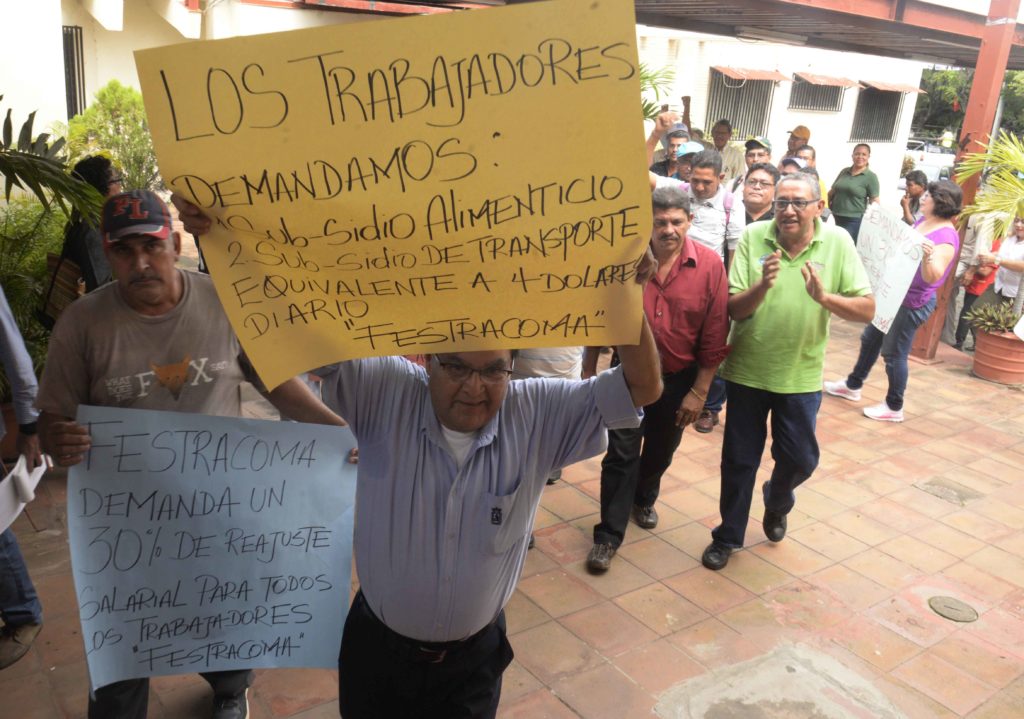 LOS TRABAJADORES
DEMANDAMOS:
1 SUb-Sidio ALIMENTICIO
2 SUb-Sidio DE TRANSPORTE
EQUIVALENTE A 4 DOLARES
DIARIO
"FESTRACOMA"
FESTRACOMA
DEMANDA UN
30% DE REAJUSTE
SALARIAL PARA TODOS
LOS TRABAJADORES
"FESTRACOMA"
FL
FOX
DEMANDAMOS
UN